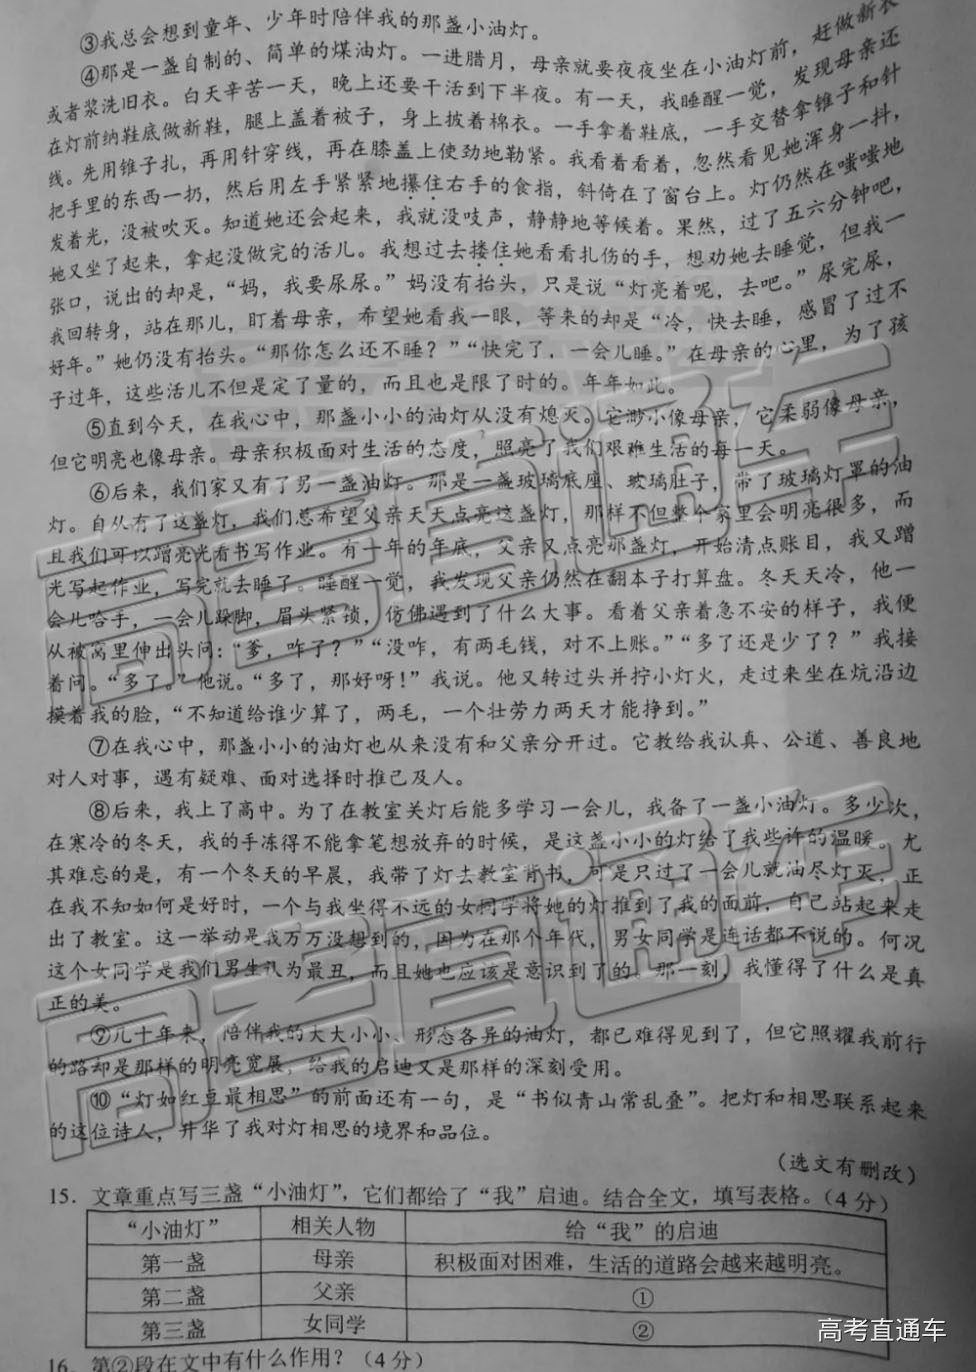 ③我总会想到童年、少年时陪伴我的那盏小油灯。
④那是一盏自制的、简单的煤油灯。一进腊月，母亲就要夜夜坐在小油灯前，赶做新衣
或者浆洗旧衣。白天辛苦一天，晚上还要干活到下半夜。有一天，我睡醒一觉，发现母亲还
在灯前纳鞋底做新鞋，腿上盖着被子，身上披着棉衣。一手拿着鞋底，一手交替拿锥子和针
线。先用锥子扎，再用针穿线，再在膝盖上使劲地勒紧。我看着看着，忽然看见她浑身一抖，
把手里的东西一扔，然后用左手紧紧地攥住右手的食指，斜倚在了窗台上。灯仍然在嗤嗤地
发着光，没被吹灭。知道她还会起来，我就没吱声，静静地等候着。果然，过了五六分钟吧，
她又坐了起来，拿起没做完的活儿。我想过去搂住她看看扎伤的手，想劝她去睡觉，但我一
张口，说出的却是，“妈，我要尿尿。”妈没有抬头，只是说“灯亮着呢，去吧。”尿完尿，
我回转身，站在那儿，盯着母亲，希望她看我一眼，等来的却是“冷，快去睡，感冒了过不
好年。”她仍没有抬头。“那你怎么还不睡？”“快完了，一会儿睡。”在母亲的心里，为了孩
子过年，这些活儿不但是定了量的，而且也是限了时的。年年如此。
⑤直到今天，在我心中，那盏小小的油灯从没有熄灭。它渺小像母亲，它柔弱像母亲，
但它明亮也像母亲。母亲积极面对生活的态度，照亮了我们艰难生活的每一天。
⑥后来，我们家又有了另一盏油灯。那是一盏玻璃底座、玻璃肚子，带了玻璃灯罩的油
灯。自从有了这盏灯，我们总希望父亲天天点亮这盏灯，那样不但整个家里会明亮很多，而
且我们可以蹭亮光看书写作业。有一年的年底，父亲又点亮那盏灯，开始清点账目，我又蹭
光写起作业，写完就去睡了。睡醒一觉，我发现父亲仍然在翻本子打算盘。冬天天冷，他一
会儿哈手，一会儿跺脚，眉头紧锁，仿佛遇到了什么大事。看着父亲着急不安的样子，我便
从被窝里伸出头问：“爹，咋了？”“没咋，有两毛钱，对不上账。”“多了还是少了？”我接
着问。“多了。”他说。“多了，那好呀！”我说。他又转过头并拧小灯火，走过来坐在炕沿边
摸着我的脸，“不知道给谁少算了，两毛，一个壮劳力两天才能挣到。”
⑦在我心中，那盏小小的油灯也从来没有和父亲分开过。它教给我认真、公道、善良地
对人对事，遇有疑难、面对选择时推己及人。
⑧后来，我上了高中。为了在教室关灯后能多学习一会儿，我备了一盏小油灯。多少次，
在寒冷的冬天，我的手冻得不能拿笔想放弃的时候，是这盏小小的灯给了我些许的温暖。尤
其难忘的是，有一个冬天的早晨，我带了灯去教室背书，可是只过了一会儿就油尽灯灭，正
在我不知如何是好时，一个与我坐得不远的女同学将她的灯推到了我的面前，自己站起来走
出了教室。这一举动是我万万没想到的，因为在那个年代，男女同学是连话都不说的。何况
这个女同学是我们男生认为最丑，而且她也应该是意识到了的。那一刻，我懂得了什么是真
正的美。
⑨几十年来，陪伴我的大大小小、形态各异的油灯，都已难得见到了，但它照耀我前行
的路却是那样的明亮宽展，给我的启迪又是那样的深刻受用。
⑩“灯如红豆最相思”的前面还有一句，是“书似青山常乱叠”。把灯和相思联系起来
的这位诗人，升华了我对灯相思的境界和品位。
（选文有删改）
15．文章重点写三盏“小油灯”，它们都给了“我”启迪。结合全文，填写表格。（4分）
“小油灯” 相关人物 给“我”的启迪
第一盏 母亲 积极面对困难，生活的道路会越来越明亮。
第二盏 父亲 ①
第三盏 女同学 ②
16．第②段在文中有什么作用？（4分）
高考直通车
高考直通车
高考直通车